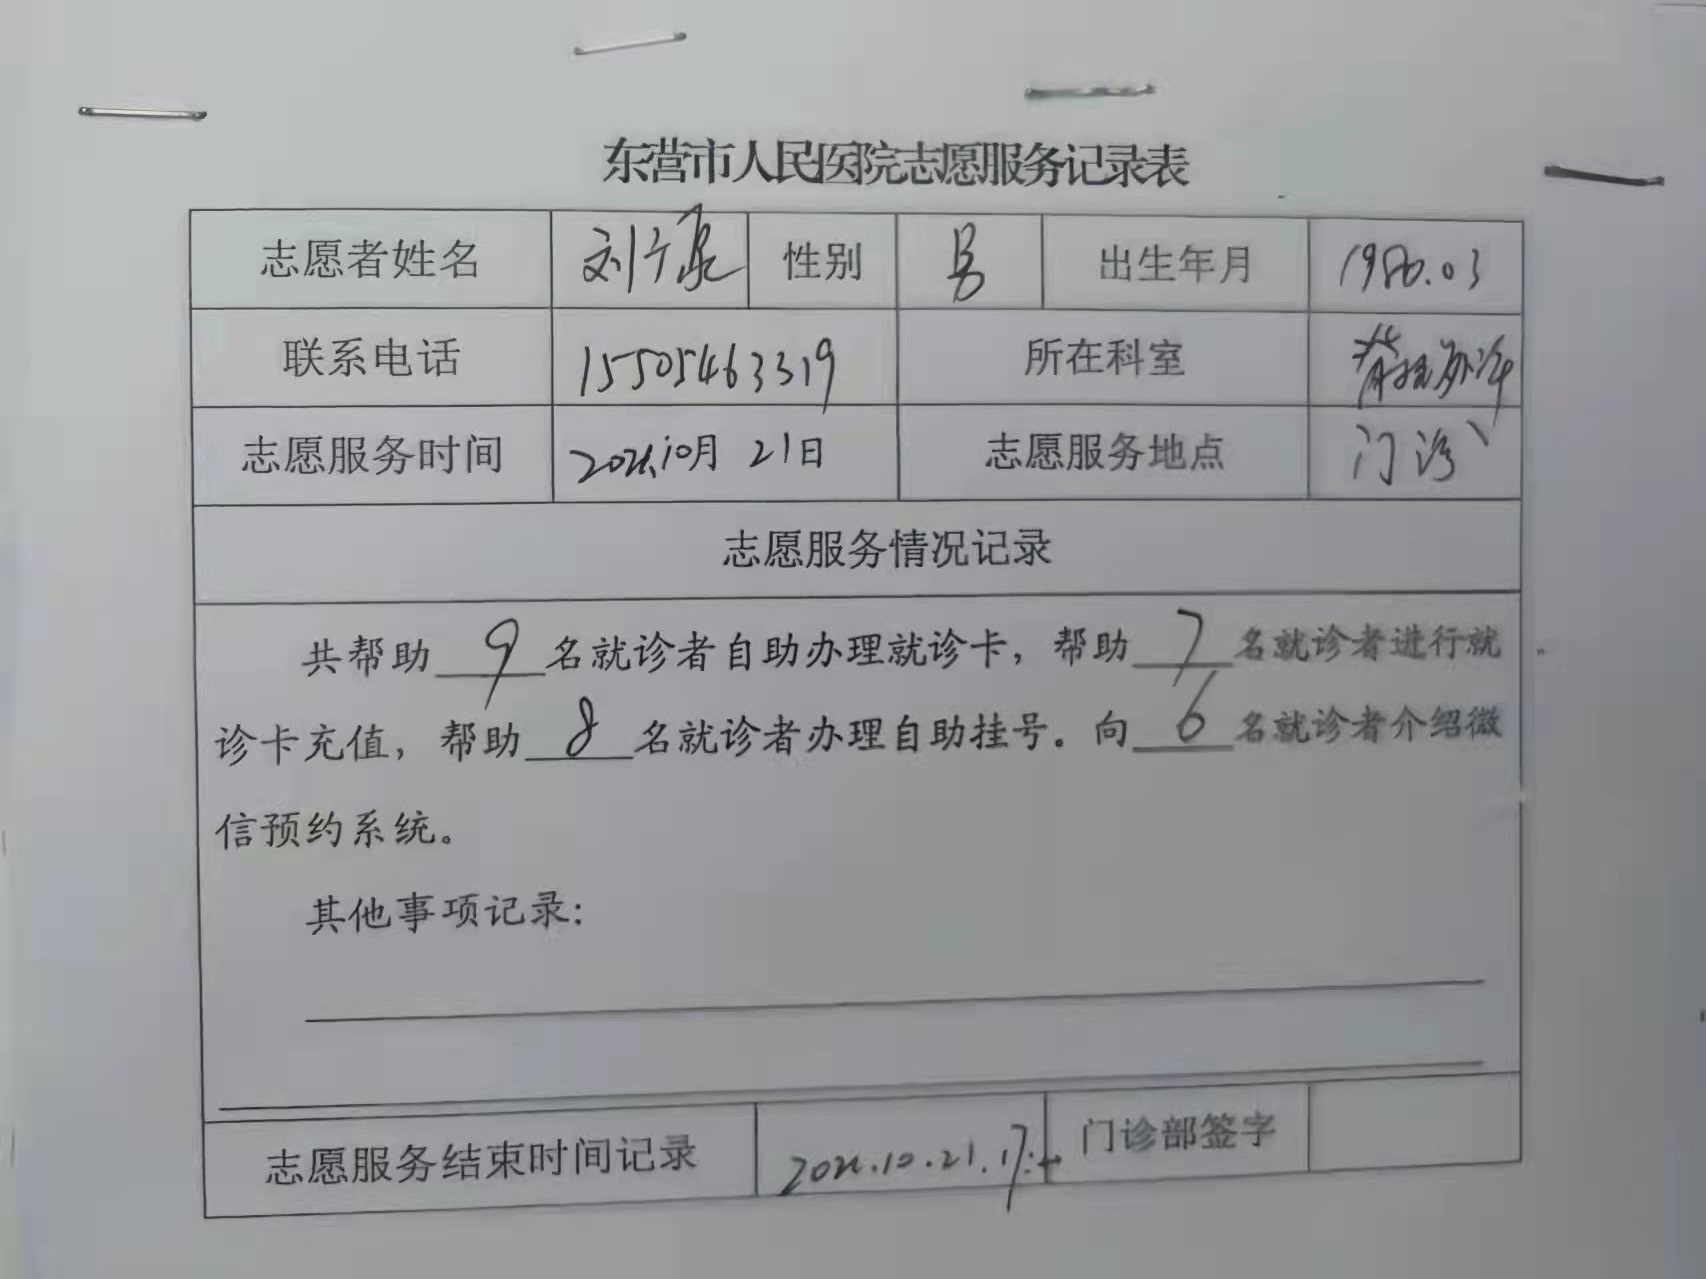 东营市人民医院志愿服务记录表
志愿者姓名 刘广 性别 男 出生年月 1980.03
联系电话 15505463319 所在科室
志愿服务时间 10月 21日 志愿服务地点 门诊
志愿服务情况记录
共帮助 9 名就诊者自助办理就诊卡，帮助 7 名就诊者进行就
诊卡充值，帮助 8 名就诊者办理自助挂号。向 6 名就诊者介绍微
信预约系统。
其他事项记录：
志愿服务结束时间记录 10.21.17: 门诊部签字